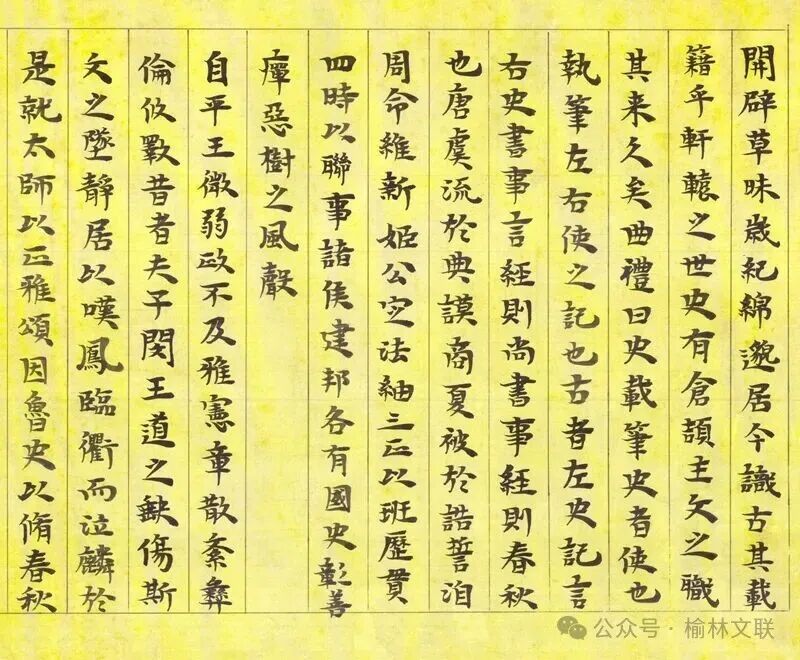 開辟草昧歲紀綿邈居今識古其載
籍乎軒轅之世史有倉頡主文之職
其来久矣曲禮曰史載筆史者使也
執筆左右使之記也古者左史記言
右史書事言經則尚書事經則春秋
也唐虞流於典謨商夏被於誥誓洎
周命維新姬公定法紬三正以班歷貫
四時以聯事諸侯建邦各有國史彰善
癉惡樹之風聲
自平王微弱政不及雅憲章散紊彝
倫攸斁昔者夫子閔王道之缺傷斯
文之墜靜居以嘆鳳臨衢而泣麟於
是就太師以正雅頌因魯史以脩春秋
公众号·榆林文联